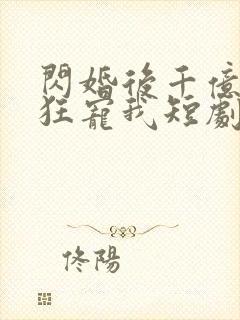 閃婚後千億
狂寵我短劇
佟陽